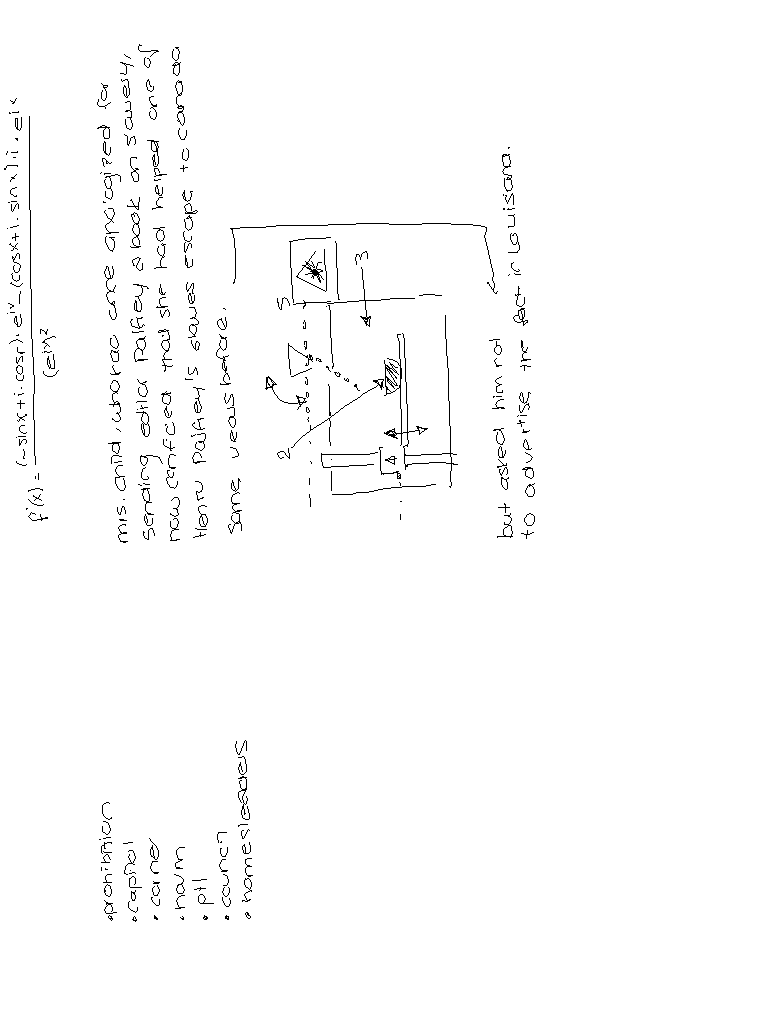 f'(x) = ((-sinx+i.cosx).e^ix-(cosx+i.sinx).i.e^ix)/(e^ix)²
mrs. child, who had once apologized for
sending editor Palfrey a book on slavery,
now confided that she had helped one of
Henry Palfrey's slaves escape to canada
some years before.
5
3
2
but asked him not
to advertise the fact in Louisana.
• prohibition
• capital
• corner
• harm
• pll
• council
• homesteaders